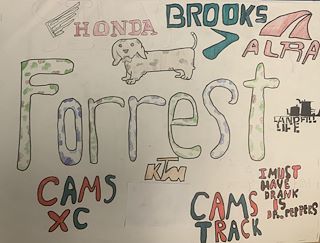 HONDA
BROOKS
ALRA
Forrest
LANDFILL
LIFE
KTM
CAMS
XC
CAMS
TRACK
I MUST
HAVE
DRANK
15
DR. PEPPERS